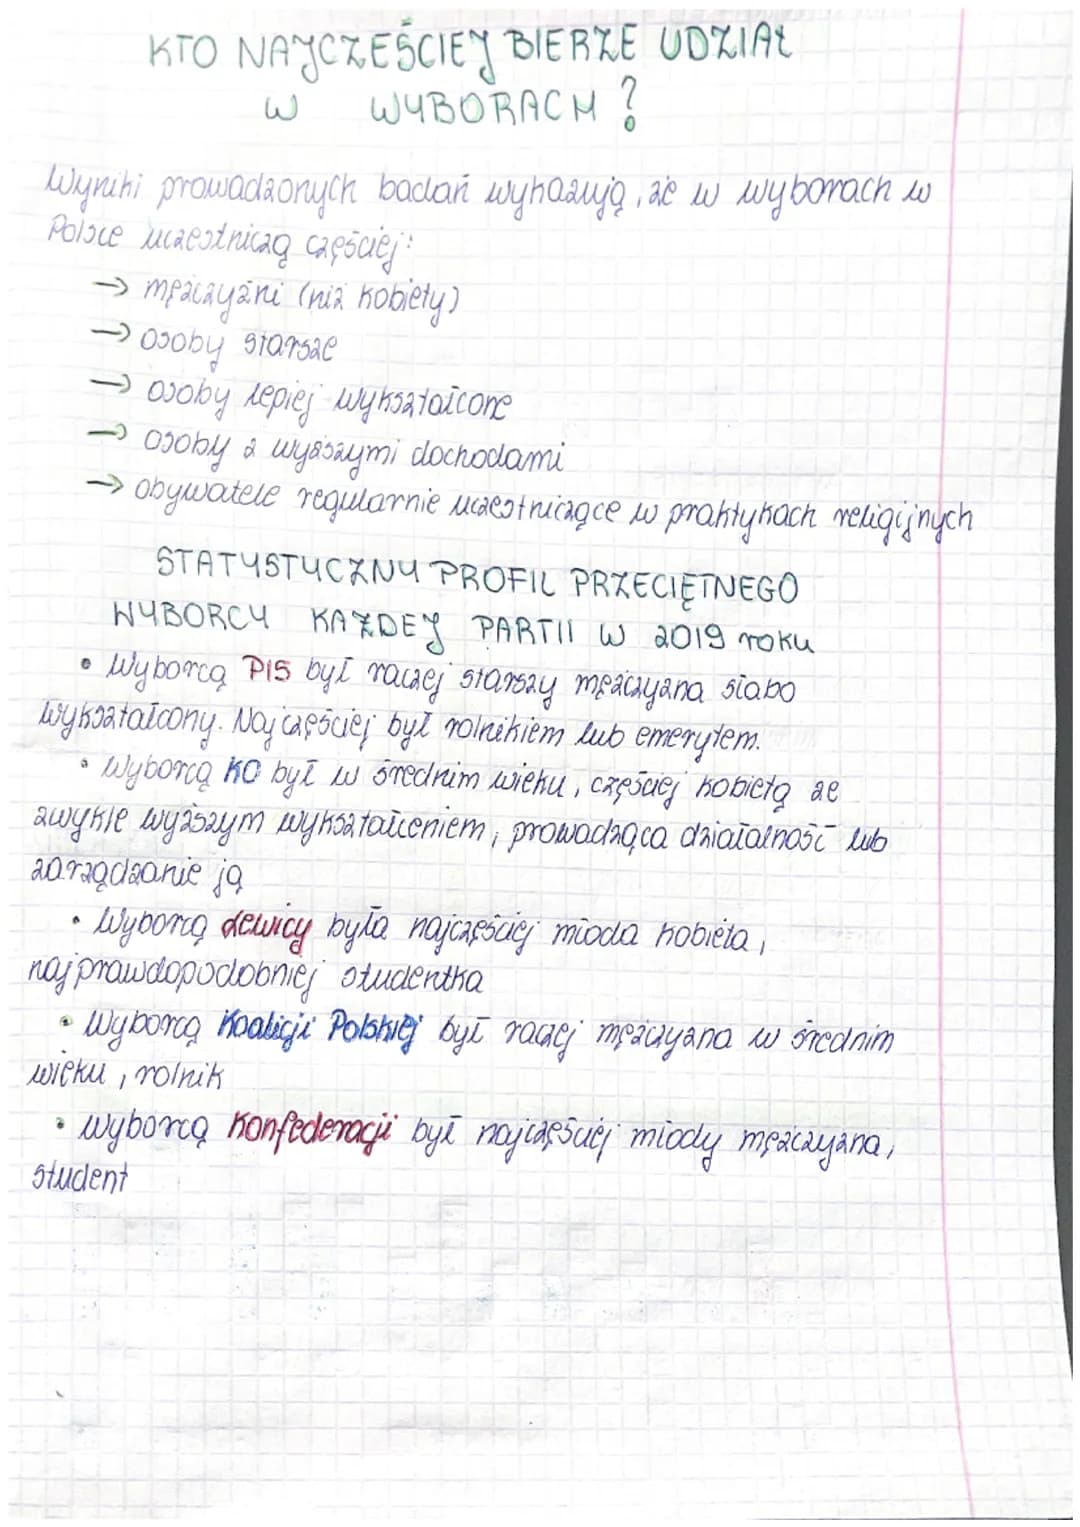 KTO NAJCZEŚCIEJ BIERZE UDZIAŁ
W WYBORACH ?
Wyniki prowadzonych badań wykazują, że w wyborach w
Polsce uczestniczą częściej:
→ mężczyźni (niż kobiety)
→ osoby starsze
→ osoby lepiej wykształcone
→ osoby z wyższymi dochodami
→ obywatele regularnie uczestniczące w praktykach religijnych
STATYSTYCZNY PROFIL PRZECIĘTNEGO
WYBORCY KAŻDEJ PARTII W 2019 roku
• Wyborcą PIS był raczej starszy mężczyzna słabo
wykształcony. Najczęściej był rolnikiem lub emerytem.
• Wyborcą KO był w średnim wieku, częściej kobietą ze
zwykle wyższym wykształceniem, prowadząca działalność lub
zarządzanie ją
• Wyborcą Lewicy była najczęściej młoda kobieta,
najprawdopodobniej studentka
• Wyborcą Koalicji Polskiej był raczej mężczyzna w średnim
wieku, rolnik
• wyborcą Konfederacji był najczęściej młody mężczyzna,
student